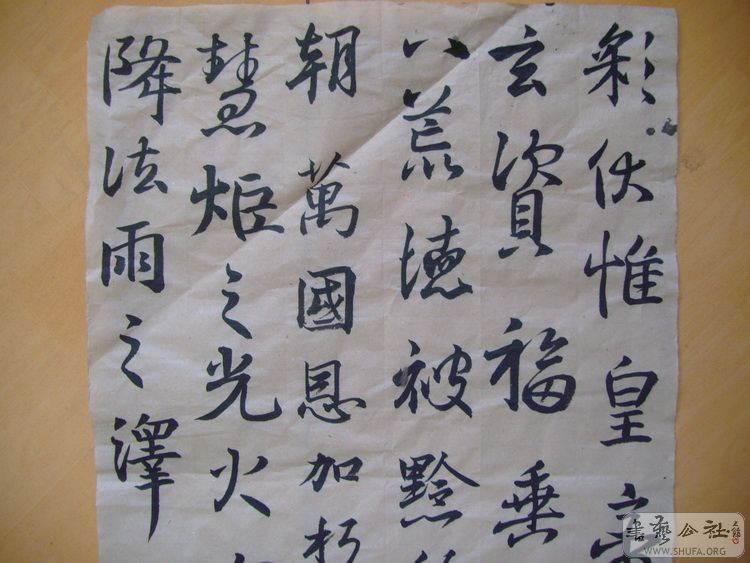 彩伏惟皇帝
玄資福乗
八荒德被黔
朝萬國恩加朽
慧炬之光火
降法雨之澤
書藝公社
WWW.SHUFA.ORG